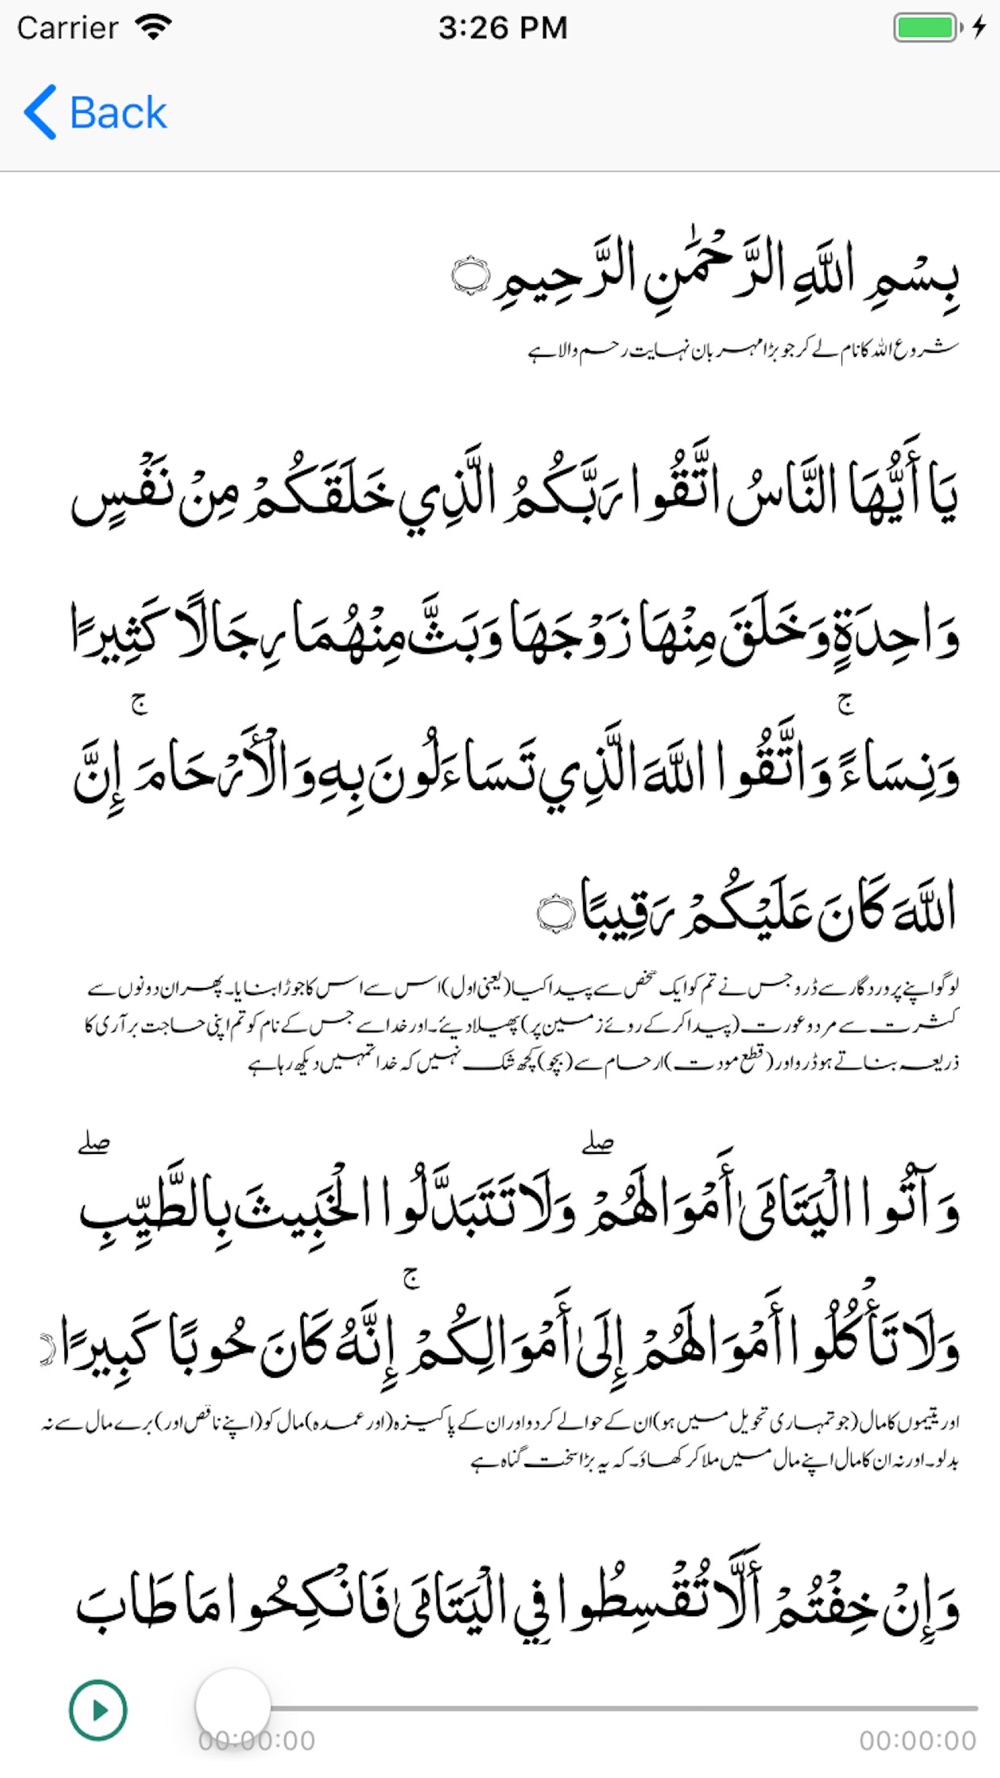 Carrier 3:26 PM
Back
بِسْمِ اللَّهِ الرَّحْمَٰنِ الرَّحِيمِ ۝
شروع الله کا نام لے کر جو بڑا مہربان نہایت رحم والا ہے
يَا أَيُّهَا النَّاسُ اتَّقُوا رَبَّكُمُ الَّذِي خَلَقَكُمْ مِنْ نَفْسٍ
وَاحِدَةٍ وَخَلَقَ مِنْهَا زَوْجَهَا وَبَثَّ مِنْهُمَا رِجَالًا كَثِيرًا
وَنِسَاءً ۚ وَاتَّقُوا اللَّهَ الَّذِي تَسَاءَلُونَ بِهِ وَالْأَرْحَامَ ۚ إِنَّ
اللَّهَ كَانَ عَلَيْكُمْ رَقِيبًا ۝
لوگو اپنے پروردگار سے ڈرو جس نے تم کو ایک شخص سے پیدا کیا (یعنی اول) اس سے اس کا جوڑا بنایا۔ پھر ان دونوں سے
کثرت سے مرد وعورت (پیدا کرکے روئے زمین پر) پھیلا دیئے۔ اور خدا سے جس کے نام کو تم اپنی حاجت برآری کا
ذریعہ بناتے ہو ڈرو اور (قطع مودت) ارحام سے (بچو) کچھ شک نہیں کہ خدا تمہیں دیکھ رہا ہے
وَآتُوا الْيَتَامَىٰ أَمْوَالَهُمْ ۖ وَلَا تَتَبَدَّلُوا الْخَبِيثَ بِالطَّيِّبِ ۖ
وَلَا تَأْكُلُوا أَمْوَالَهُمْ إِلَىٰ أَمْوَالِكُمْ ۚ إِنَّهُ كَانَ حُوبًا كَبِيرًا ۝
اور یتیموں کا مال (جو تمہاری تحویل میں ہو) ان کے حوالے کردو اور ان کے پاکیزہ (اور عمدہ) مال کو (اپنے ناقص اور) برے مال سے نہ
بدلو۔ اور نہ ان کا مال اپنے مال میں ملا کر کھاؤ۔ کہ یہ بڑا سخت گناہ ہے
وَإِنْ خِفْتُمْ أَلَّا تُقْسِطُوا فِي الْيَتَامَىٰ فَانْكِحُوا مَا طَابَ
00:00:00 00:00:00